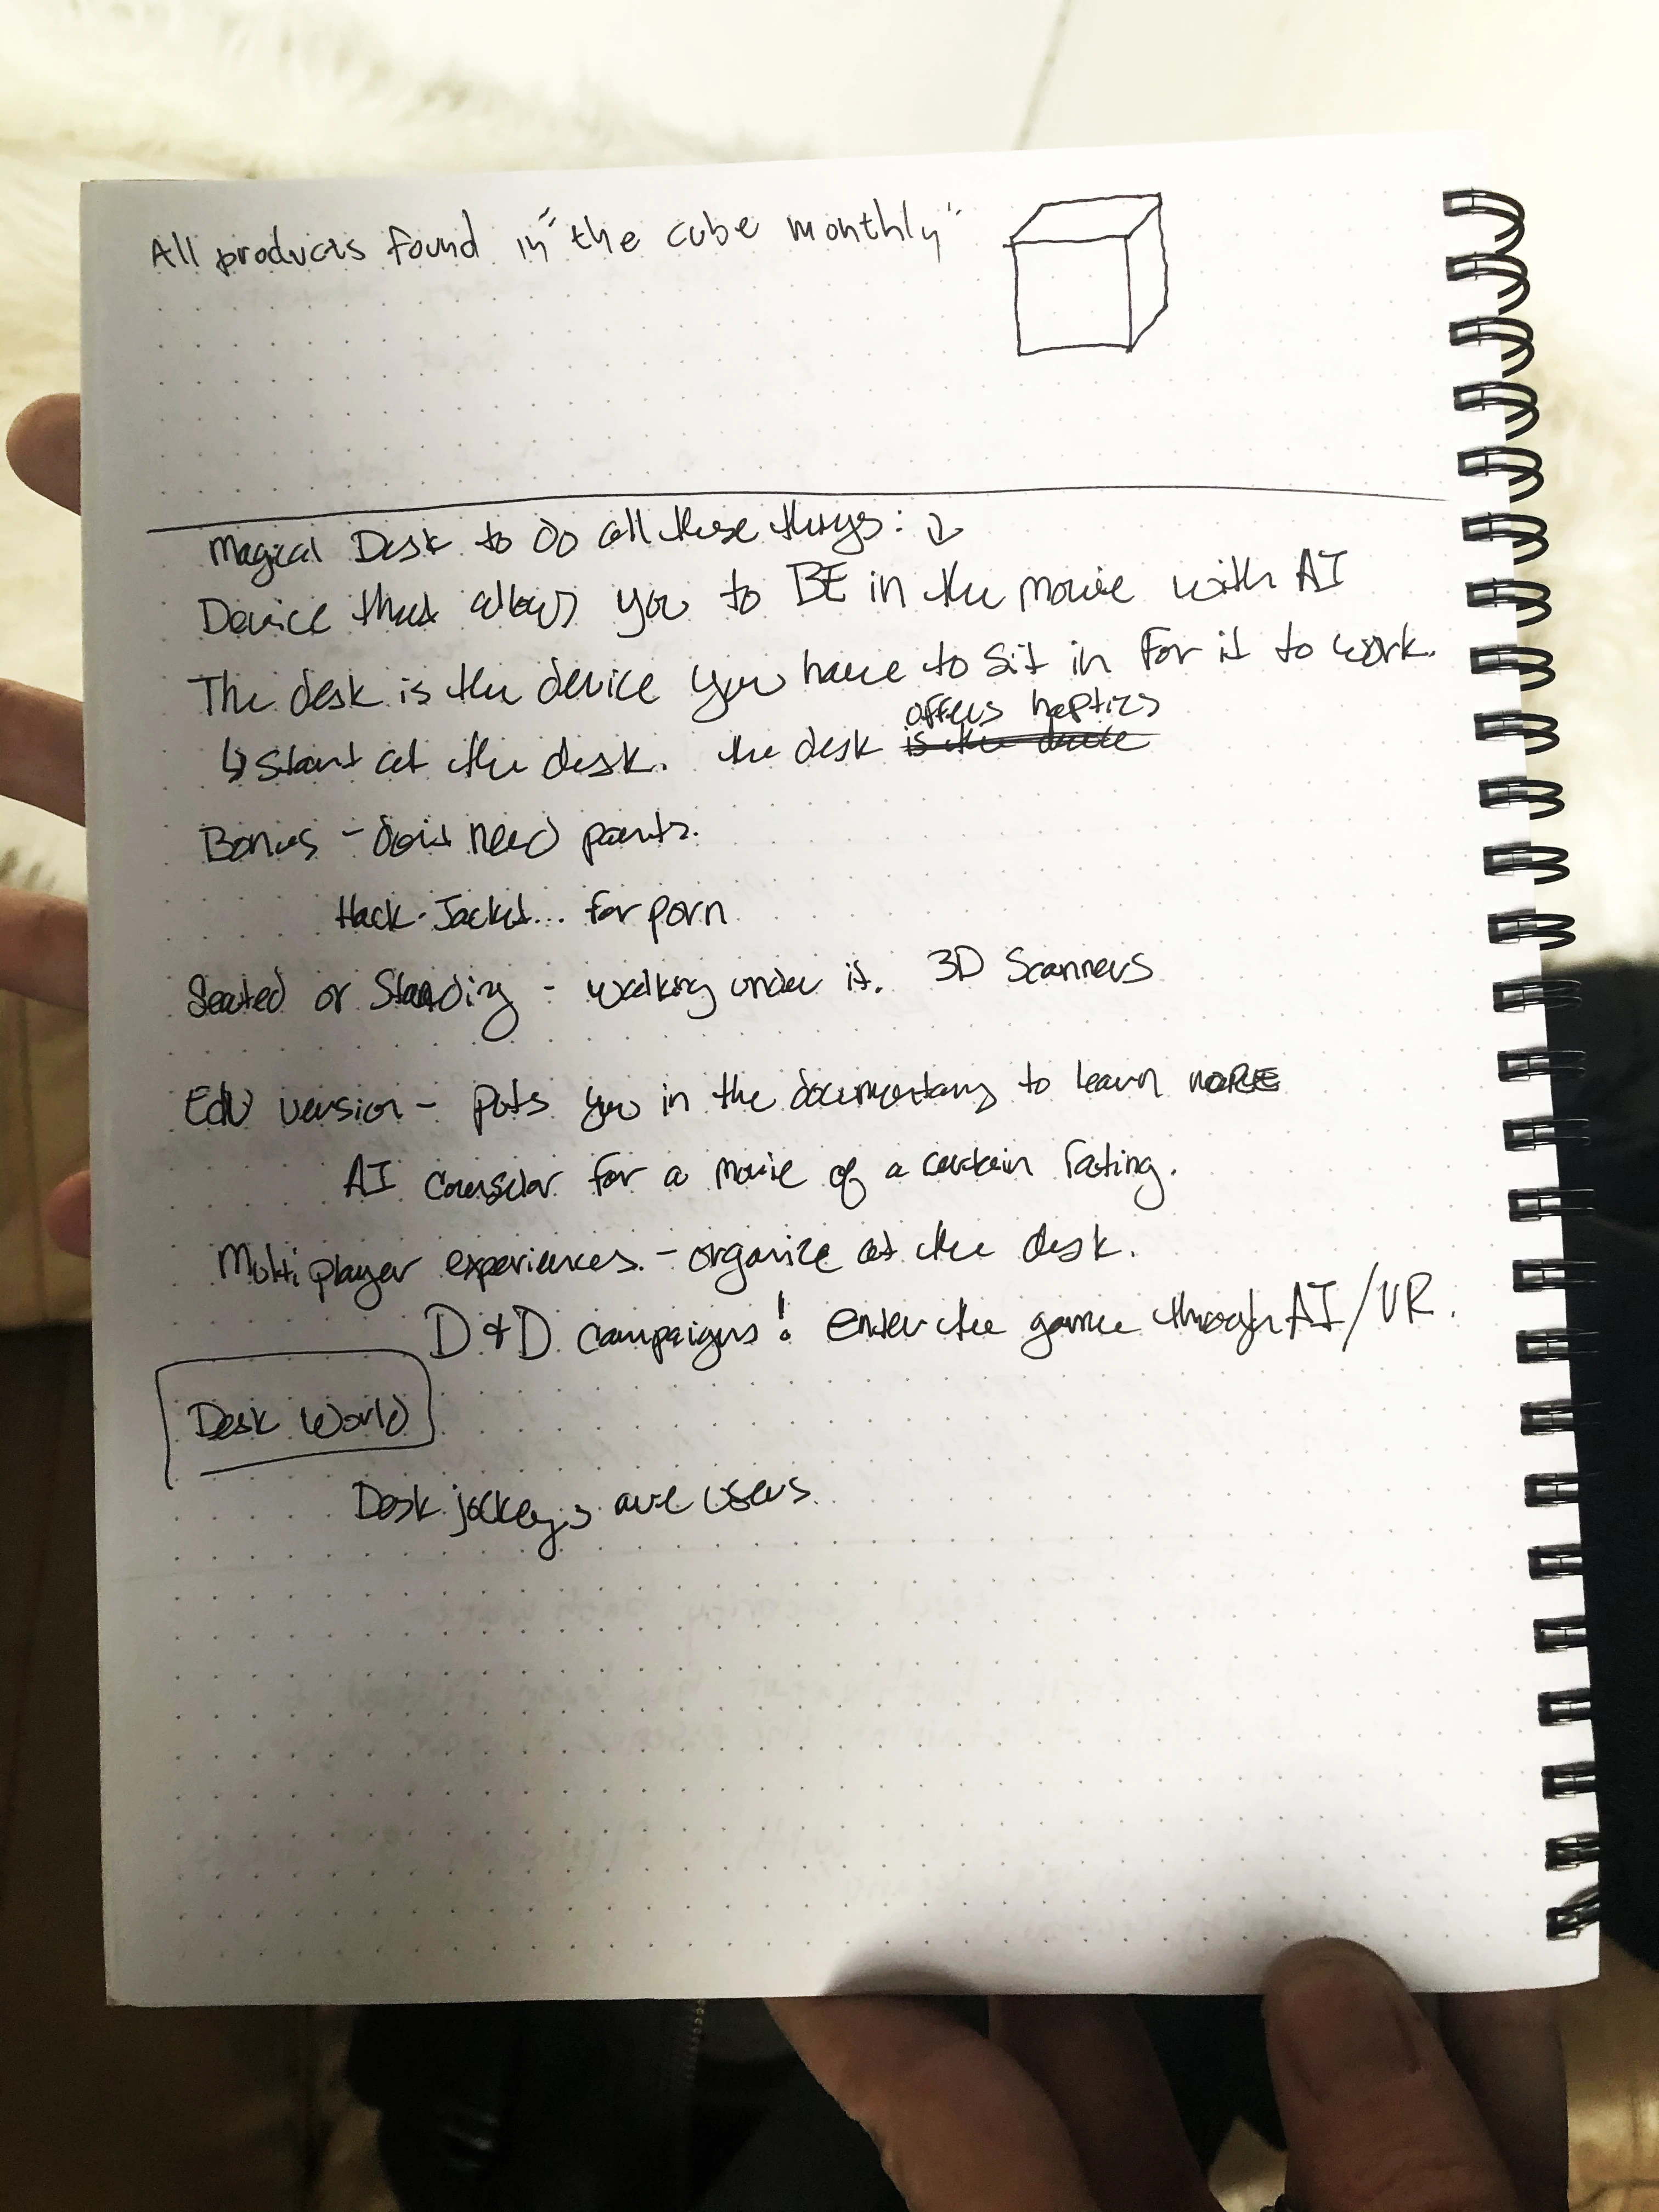 All products found in "the cube monthly"
Magical Desk to do all these things: ↓
Device that allows you to BE in the movie with AI
The desk is the device you have to sit in for it to work.
offers haptics
↳ Start at the desk. the desk is the device
Bonus - don't need pants.
Hack-Jacket... for porn
Seated or Standing - walking under it. 3D Scanners
EDU version - puts you in the documentary to learn MORE
AI Counselor for a movie of a certain rating.
Multiplayer experiences. - organize at the desk.
D&D campaigns! enter the game through AI/VR.
Desk World
Desk jockeys are users